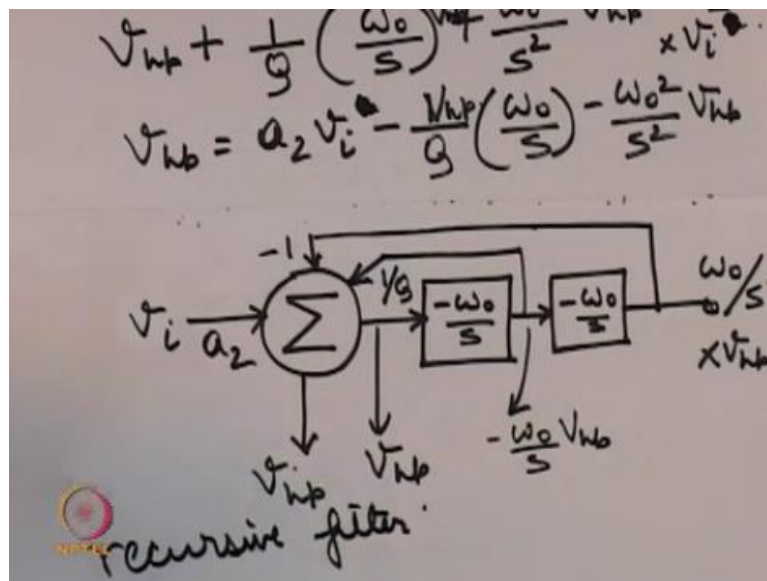 V_hp + 1/Q (ω₀/s) V_hp + ω₀²/s² V_hp
× V_i
V_hp = a₂ V_i - V_hp/Q (ω₀/s) - ω₀²/s² V_hp
-1
V_i a₂ Σ 1/Q -ω₀/s -ω₀/s ω₀/s
× V_hp
V_hp V_hp -ω₀/s V_hp
recursive filter
NPTEL